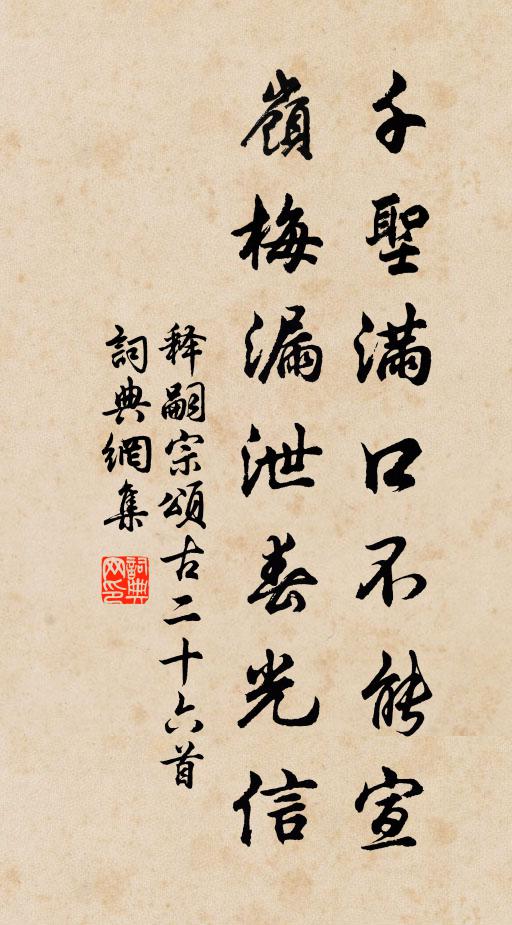 千聖滿口不能宣
嶺梅漏泄春光信
释嗣宗頌古二十六首
詞典網集
詞典网印